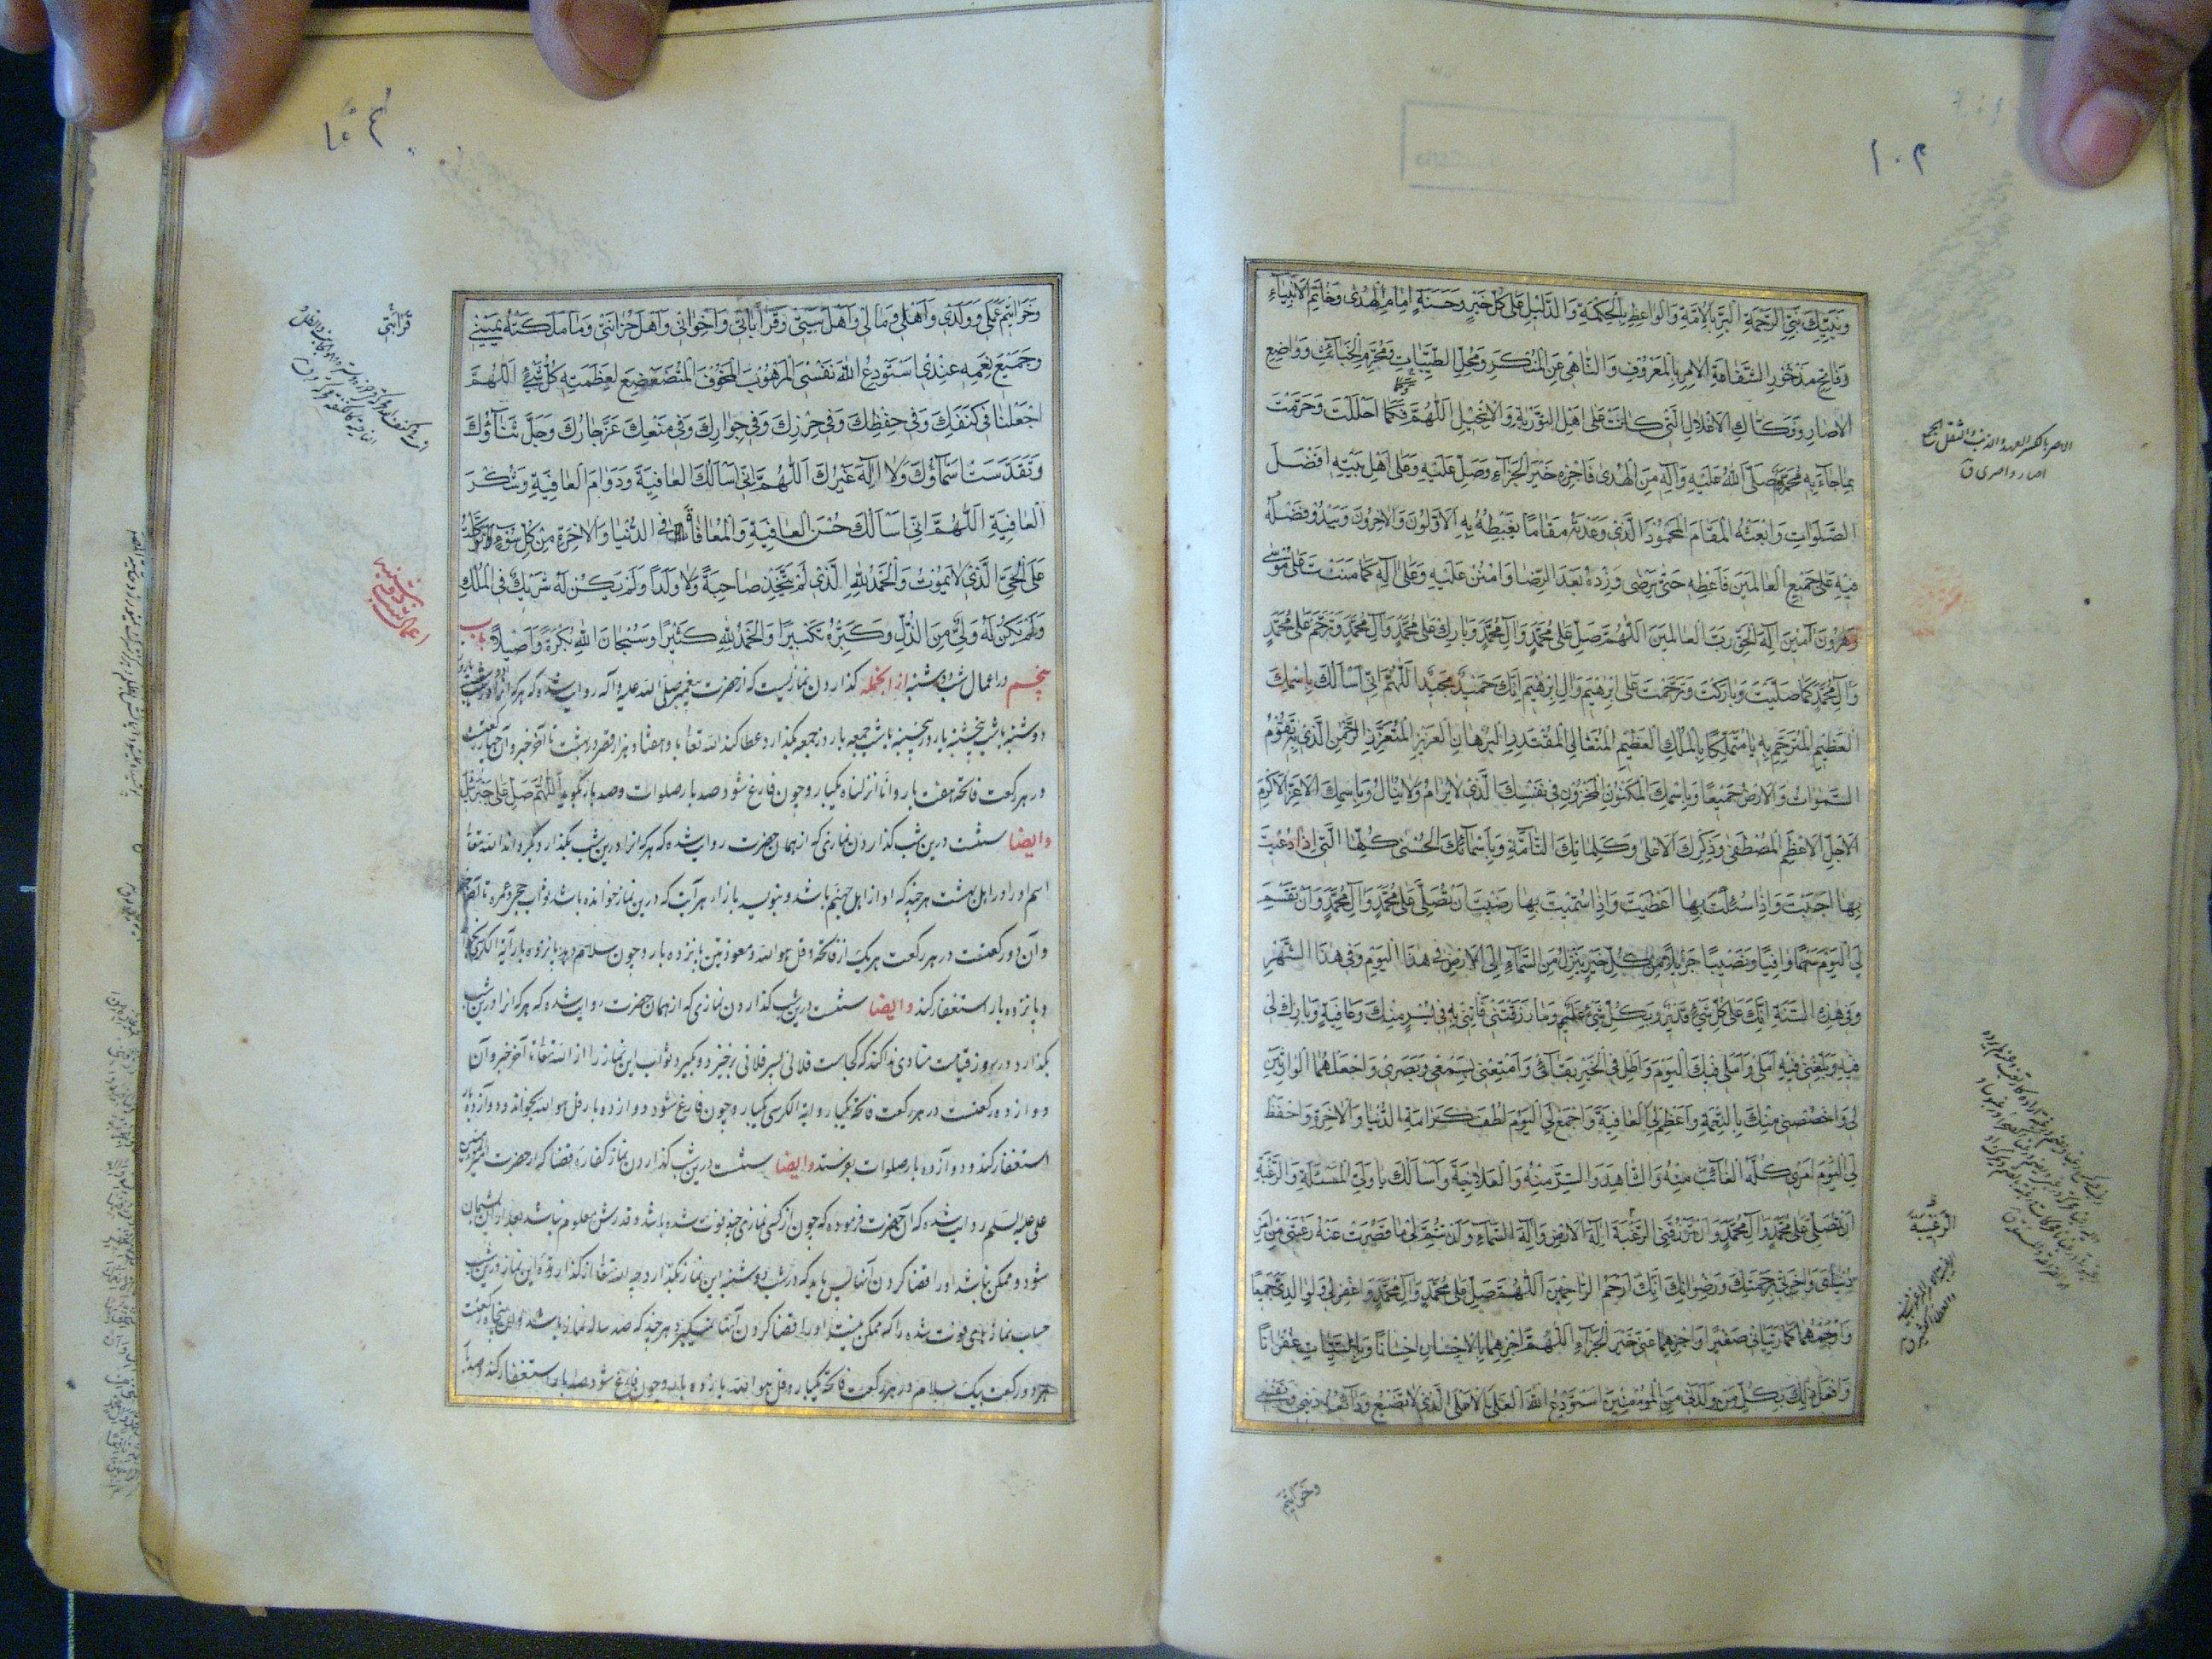 ١٠٣
وَنَبِيِّكَ نَبِيِّ الرَّحْمَةِ الْبَرِّ بِالْاُمَّةِ وَالْوَاعِظِ بِالْحِكْمَةِ وَالدَّلِيلِ عَلىٰ كُلِّ خَيْرٍ وَحَسَنَةٍ اِمَامِ الْهُدىٰ وَخَاتِمِ الْاَنْبِيَاءِ
وَفَاتِحِ مَذْخُورِ الشَّفَاعَةِ الْاٰمِرِ بِالْمَعْرُوفِ وَالنَّاهِى عَنِ الْمُنْكَرِ وَمُحِلِّ الطَّيِّبَاتِ وَمُحَرِّمِ الْخَبَآئِثِ وَوَاضِعِ
الْاٰصَارِ وَفَكَّاكِ الْاَغْلَالِ الَّتِى كَانَتْ عَلىٰ اَهْلِ التَّوْرٰيةِ وَالْاِنْجِيلِ اَللّٰهُمَّ فَكَمَا اَحْلَلْتَ وَحَرَّمْتَ
بِمَا جَاءَ بِهِ مُحَمَّدٌ صَلَّى اللّٰهُ عَلَيْهِ وَآلِهِ مِنَ الْهُدىٰ فَاجْزِهِ خَيْرَ الْجَزَاءِ وَصَلِّ عَلَيْهِ وَعَلىٰ اَهْلِ بَيْتِهِ اَفْضَلَ
الصَّلَوَاتِ وَابْعَثْهُ الْمَقَامَ الْمَحْمُودَ الَّذِى وَعَدْتَهُ مَقَامًا يَغْبِطُهُ بِهِ الْاَوَّلُونَ وَالْاٰخِرُونَ وَيَبْدُو فَضْلُهُ
فِيهِ عَلىٰ جَمِيعِ الْعَالَمِينَ فَاَعْطِهِ حَتّىٰ يَرْضىٰ وَزِدْهُ بَعْدَ الرِّضَا وَامْنُنْ عَلَيْهِ وَعَلىٰ آلِهِ كَمَا مَنَنْتَ عَلىٰ مُوسىٰ
وَهٰرُونَ آمِينَ اِلٰهَ الْحَقِّ رَبَّ الْعَالَمِينَ اَللّٰهُمَّ صَلِّ عَلىٰ مُحَمَّدٍ وَآلِ مُحَمَّدٍ وَبَارِكْ عَلىٰ مُحَمَّدٍ وَآلِ مُحَمَّدٍ وَتَرَحَّمْ عَلىٰ مُحَمَّدٍ
وَآلِ مُحَمَّدٍ كَمَا صَلَّيْتَ وَبَارَكْتَ وَتَرَحَّمْتَ عَلىٰ اِبْرٰهِيمَ وَآلِ اِبْرٰهِيمَ اِنَّكَ حَمِيدٌ مَجِيدٌ اَللّٰهُمَّ اِنِّى اَسْاَلُكَ بِاسْمِكَ
الْعَظِيمِ الْمُتَرَحَّمِ بِهِ يَا مُتَمَلِّكًا بِالْمُلْكِ الْعَظِيمِ الْمُتَعَالِى الْمُقْتَدِرِ الْبُرْهَانِ الْعَزِيزِ الْمُتَعَزِّزِ الرَّحْمٰنِ الَّذِى بِهِ تَقُومُ
السَّمٰوَاتُ وَالْاَرْضُ جَمِيعًا وَبِاسْمِكَ الْمَكْنُونِ الْمَخْزُونِ فِى نَفْسِكَ الَّذِى لَا يُرَامُ وَلَا يُنَالُ وَبِاسْمِكَ الْاَعَزِّ الْاَكْرَمِ
الْاَجَلِّ الْاَعْظَمِ الْمُصْطَفىٰ وَذِكْرِكَ الْاَعْلىٰ وَكَلِمَاتِكَ التَّامَّةِ وَبِاَسْمَآئِكَ الْحُسْنىٰ كُلِّهَا الَّتِى اِذَا دُعِيتَ
بِهَا اَجَبْتَ وَاِذَا سُئِلْتَ بِهَا اَعْطَيْتَ وَاِذَا سُمِّيتَ بِهَا رَضِيتَ اَنْ تُصَلِّىَ عَلىٰ مُحَمَّدٍ وَآلِ مُحَمَّدٍ وَاَنْ تَقْسِمَ
لِىَ الْيَوْمَ سَهْمًا وَافِيًا وَنَصِيبًا جَزِيلًا مِنْ كُلِّ خَيْرٍ يَنْزِلُ مِنَ السَّمَاءِ اِلَى الْاَرْضِ فِى هٰذَا الْيَوْمِ وَفِى هٰذَا الشَّهْرِ
وَفِى هٰذِهِ السَّنَةِ اِنَّكَ عَلىٰ كُلِّ شَىْءٍ قَدِيرٌ وَبِكُلِّ شَىْءٍ عَلِيمٌ وَمَا رَزَقْتَنِى فَاٰتِنِى بِهِ فِى يُسْرٍ مِنْكَ وَعَافِيَةٍ وَبَارِكْ لِى
فِيهِ وَبَلِّغْنِى فِيهِ اَمَلِى وَاَمَلِى فِيكَ الْيَوْمَ وَاَطِلْ فِى الْخَيْرِ بَقَآئِى وَاَمْتِعْنِى بِسَمْعِى وَبَصَرِى وَاجْعَلْهُمَا الْوَارِثَيْنِ
لِى وَاخْصُصْنِى مِنْكَ بِالنِّعْمَةِ وَاَعْظِمْ لِىَ الْعَافِيَةَ وَاجْمَعْ لِىَ الْيَوْمَ لُطْفَ كَرَامَةِ الدُّنْيَا وَالْاٰخِرَةِ وَاحْفَظْ
لِىَ الْيَوْمَ اَمْرِى كُلَّهُ الْغَآئِبَ مِنْهُ وَالشَّاهِدَ وَالسِّرَّ مِنْهُ وَالْعَلَانِيَةَ وَاَسْاَلُكَ يَا وَلِىَّ الْمَسْئَلَةِ وَالرَّغْبَةِ
اَنْ تُصَلِّىَ عَلىٰ مُحَمَّدٍ وَآلِ مُحَمَّدٍ وَاَنْ تَرْزُقَنِى الرَّغْبَةَ اِلٰهَ الْاَرْضِ وَاِلٰهَ السَّمَاءِ وَاَنْ تُتِمَّ لِى مَا قَصُرَتْ عَنْهُ رَغْبَتِى مِنْ اَمْرِ
دُنْيَاىَ وَآخِرَتِى بِرَحْمَتِكَ وَرِضْوَانِكَ اِنَّكَ اَرْحَمُ الرَّاحِمِينَ اَللّٰهُمَّ صَلِّ عَلىٰ مُحَمَّدٍ وَآلِ مُحَمَّدٍ وَاغْفِرْ لِى وَلِوَالِدَىَّ جَمِيعًا
وَارْحَمْهُمَا كَمَا رَبَّيَانِى صَغِيرًا وَاجْزِهِمَا عَنِّى خَيْرَ الْجَزَاءِ اَللّٰهُمَّ اجْزِهِمَا بِالْاِحْسَانِ اِحْسَانًا وَبِالسَّيِّئَاتِ غُفْرَانًا
وَافْعَلْ ذٰلِكَ بِكُلِّ مَنْ وَلَدَنِى مِنَ الْمُؤْمِنِينَ اَسْتَوْدِعُ اللّٰهَ الْعَلِىَّ الْاَعْلَى الَّذِى لَا تَضِيعُ وَدَآئِعُهُ دِينِى وَنَفْسِى
وخواتيم
الاصر بالكسر العهد والذنب والثقل الجمع
اصار
الرغيبة
وَخَوَاتِيمَ عَمَلِى وَوَلَدِى وَاَهْلِى وَمَالِى وَاَهْلَ بَيْتِى وَقَرَابَاتِى وَاِخْوَانِى وَاَهْلَ حُزَانَتِى وَمَا مَلَكَتْهُ يَمِينِى
وَجَمِيعَ نِعَمِهِ عِنْدِى اَسْتَوْدِعُ اللّٰهَ نَفْسِى الْمَرْهُوبَ الْمَخُوفَ الْمُتَضَعْضِعَ لِعَظَمَتِهِ كُلُّ شَىْءٍ اَللّٰهُمَّ
اجْعَلْنَا فِى كَنَفِكَ وَفِى حِفْظِكَ وَفِى حِرْزِكَ وَفِى جِوَارِكَ وَفِى مَنْعِكَ عَزَّ جَارُكَ وَجَلَّ ثَنَآؤُكَ
وَتَقَدَّسَتْ اَسْمَآؤُكَ وَلَا اِلٰهَ غَيْرُكَ اَللّٰهُمَّ اِنِّى اَسْاَلُكَ الْعَافِيَةَ وَدَوَامَ الْعَافِيَةِ وَشُكْرَ
الْعَافِيَةِ اَللّٰهُمَّ اِنِّى اَسْاَلُكَ حُسْنَ الْعَافِيَةِ وَالْمُعَافَاةَ فِى الدُّنْيَا وَالْاٰخِرَةِ مِنْ كُلِّ سُوْءٍ تَوَكَّلْتُ
عَلَى الْحَىِّ الَّذِى لَا يَمُوتُ وَالْحَمْدُ لِلّٰهِ الَّذِى لَمْ يَتَّخِذْ صَاحِبَةً وَلَا وَلَدًا وَلَمْ يَكُنْ لَهُ شَرِيكٌ فِى الْمُلْكِ
وَلَمْ يَكُنْ لَهُ وَلِىٌّ مِنَ الذُّلِّ وَكَبِّرْهُ تَكْبِيرًا وَالْحَمْدُ لِلّٰهِ كَثِيرًا وَسُبْحَانَ اللّٰهِ بُكْرَةً وَاَصِيلًا باب
پنجم در اعمال شب دوشنبه از انجمله گذاردن نمازيست كه از حضرت پيغمبر صلى الله عليه وآله روايت شده كه هر كه
دوشنبه يا شب پنجشنبه يا روز پنجشنبه يا شب جمعه يا روز جمعه بگذارد عطا كند الله تعالى باو هفتاد هزار قصر در بهشت تا آخر خبر وآن چهار ركعت
در هر ركعت فاتحه هفت بار وانا انزلناه يكبار وچون فارغ شود صد بار صلوات وصد بار بگويد اللهم صل على جبرئيل
وايضا سنت درين شب گذاردن نمازى كه از همان حضرت روايت شده كه هر كه انرا درين شب بگذارد بگرداند الله تعالى
اسم او را در اهل بهشت هر چند كه او از اهل جهنم باشد وبنويسد بازاء هر آيت كه درين نماز خوانده باشد ثواب حج وعمره
وآن دو ركعتست در هر ركعت هر يك از فاتحه وقل هو الله ومعوذتين پانزده بار وچون سلام دهد پانزده بار آية الكرسى
وپانزده بار استغفار كند وايضا سنت درين شب گذاردن نمازى كه از همان حضرت روايت شده كه هر كه انرا درين شب
بگذارد در روز قيامت منادى ندا كند كه كجاست فلانى پسر فلانى برخيزد وبگيرد ثواب اين نماز را از الله تعالى تا آخر خبر وآن
دوازده ركعتست در هر ركعت فاتحه يكبار وآية الكرسى يكبار وچون فارغ شود دوازده بار قل هو الله بخواند ودوازده بار
استغفار كند ودوازده بار صلوات بفرستد وايضا سنت درين شب گذاردن نماز كفاره قضا كه از حضرت
على عليه السلم روايت شده كه آن حضرت فرموده كه چون از كسى نمازى چند فوت شده باشد وقدرش معلوم نباشد
شود وممكن نباشد او را قضا كردن آنها پس بايد كه در شب دوشنبه اين نماز بگذارد
حساب نمازهاى فوت شده را كه ممكن نيست او را قضا كردن آنها هر چند كه صد ساله نماز باشد وآن پنجاه ركعتست
هر دو ركعت بيك سلام در هر ركعت فاتحه يكبار وقل هو الله يازده بار وچون فارغ شود صد بار استغفار كند
قرابتى